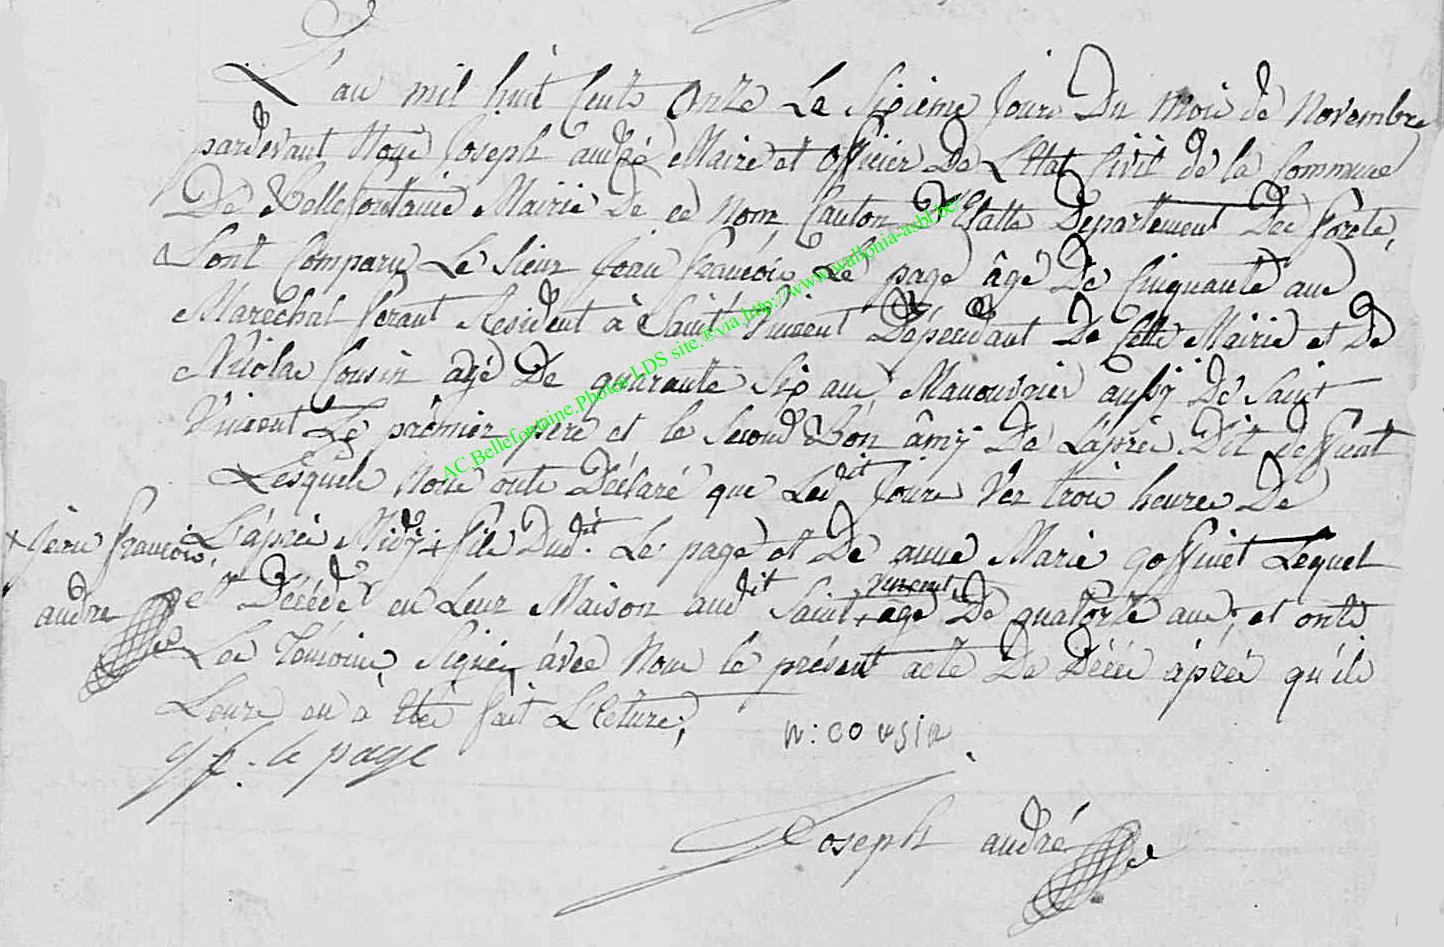 L'an mil huit Cents Onze Le Sixième Jour Du mois de Novembre
pardevant Nous Joseph andré Maire et officier De L'Etat Civil de la Commune
De Bellefontaine Mairie De ce Nom Canton D'Etalle Departement Des forêts,
Sont Comparus Le Sieur Jean françois Le page âgé De Cinquante ans
Maréchal ferant Résident à Saint Vincent Dépendant De Cette Mairie et De
Nicolas Cousin agé De quarante Six ans Manouvrier aussy De Saint
Vincent Le prémier père et le Second Bon âmy De L'après Dit deffunt
Lesquels Nous onts Déclaré que Ledit Jour Ver trois heures De
L'après Midy + fils Dudit Le page et De anne Marie goffinet Lequel
+ françois,
andre
est Décédé en Leur Maison audit Saint Vincent, agé De quatorze ans, et onts
Les Témoins Signés avec Nous le présent acte De Décès après qu'ils
Leurs en à été fait L'Ecture;
j f. le page
n: cousin
Joseph andré
AC Bellefontaine.Photos LDS site ® via http://www.wallonia-asbl.be/